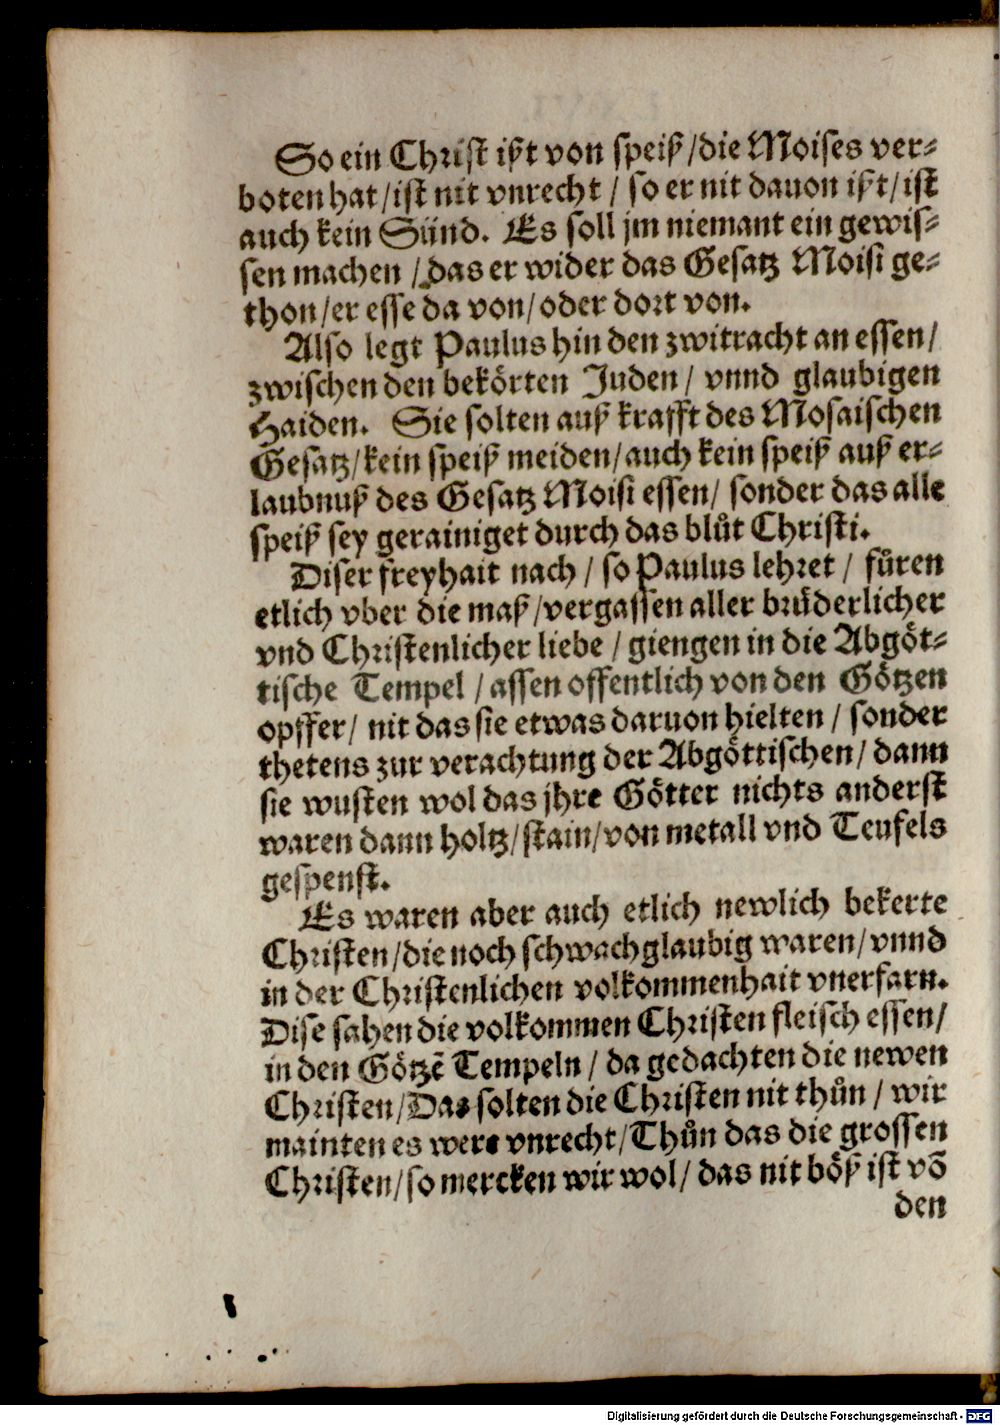 So ein Christ ißt von speiß / die Moises ver⸗
boten hat / ist nit vnrecht / so er nit dauon ißt / ist
auch kein Sünd. Es soll jm niemant ein gewis⸗
sen machen / das er wider das Gesatz Moisi ge⸗
thon / er esse da von / oder dort von.
Also legt Paulus hin den zwitracht an essen /
zwischen den bekörten Juden / vnnd glaubigen
Haiden. Sie solten auß krafft des Mosaischen
Gesatz / kein speiß meiden / auch kein speiß auß er⸗
laubnuß des Gesatz Moisi essen / sonder das alle
speiß sey gerainiget durch das blůt Christi.
Diser freyhait nach / so Paulus lehret / fůren
etlich vber die maß / vergassen aller brůderlicher
vnd Christenlicher liebe / giengen in die Abgöt⸗
tische Tempel / assen offentlich von den Götzen
opffer / nit das sie etwas daruon hielten / sonder
thetens zur verachtung der Abgöttischen / dann
sie wusten wol das jhre Götter nichts anderst
waren dann holtz / stain / von metall vnd Teufels
gespenst.
Es waren aber auch etlich newlich bekerte
Christen / die noch schwachglaubig waren / vnnd
in der Christenlichen volkommenhait vnerfarn.
Dise sahen die volkommen Christen fleisch essen /
in den Götzē Tempeln / da gedachten die newen
Christen / Das solten die Christen nit thůn / wir
mainten es were vnrecht / Thůn das die grossen
Christen / so mercken wir wol / das nit böß ist vō
den
Digitalisierung gefördert durch die Deutsche Forschungsgemeinschaft - DFG